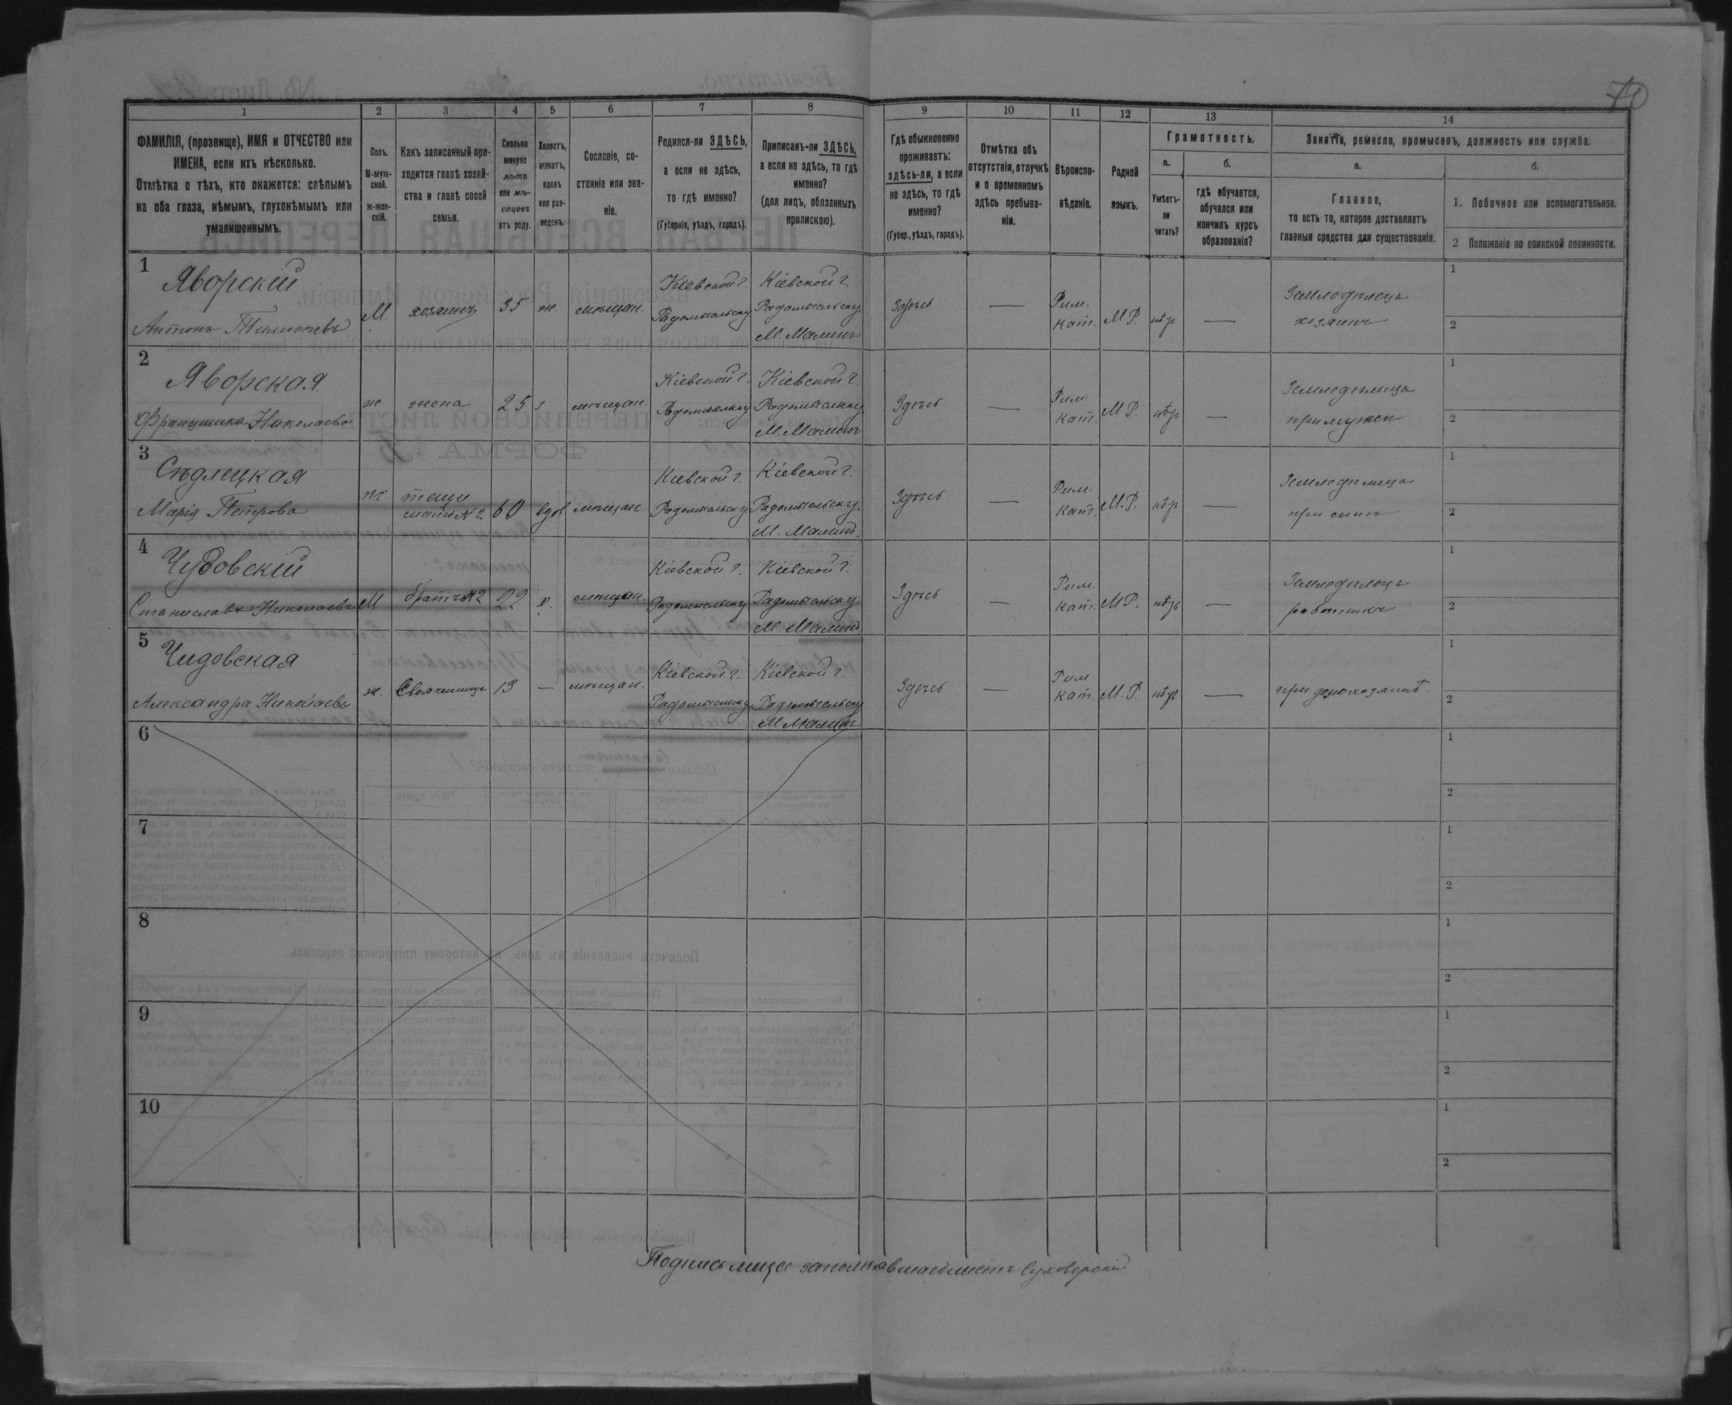 70
1 2 3 4 5 6 7 8 9 10 11 12 13 14
ФАМИЛІЯ, (прозвище), ИМЯ и ОТЧЕСТВО или
ИМЕНА, если ихъ нѣсколько.
Отмѣтка о тѣхъ, кто окажется: слѣпымъ
на оба глаза, нѣмымъ, глухонѣмымъ или
умалишеннымъ.
Полъ.
М-муж-
ской.
ж-жен-
скій.
Какъ записанный при-
ходится главѣ хозяй-
ства и главѣ своей
семьи.
Сколько
минуло
лѣтъ
или мѣ-
сяцевъ
отъ роду.
Холостъ,
женатъ,
вдовъ
или раз-
веденъ.
Сословіе, со-
стояніе или зва-
ніе.
Родился-ли ЗДѢСЬ,
а если не здѣсь,
то гдѣ именно?
(Губернія, уѣздъ, городъ).
Приписанъ-ли ЗДѢСЬ,
а если не здѣсь, то гдѣ
именно?
(для лицъ, обязанныхъ
припискою).
Гдѣ обыкновенно
проживаетъ:
здѣсь-ли, а если
не здѣсь, то гдѣ
именно?
(Губер., уѣздъ, городъ).
Отмѣтка объ
отсутствіи, отлучкѣ
и о временномъ
здѣсь пребыва-
ніи.
Вѣроиспо-
вѣданіе.
Родной
языкъ.
Грамотность.
а.
Умѣетъ-
ли
читать?
б.
гдѣ обучается,
обучался или
кончилъ курсъ
образованія?
Занятіе, ремесло, промыселъ, должность или служба.
а.
Главное,
то есть то, которое доставляетъ
главныя средства для существованія.
б.
1. Побочное или вспомогательное.
2 Положеніе по воинской повинности.
1
Яворскій
Антонъ
М хозяинъ 35 ж. мѣщан.
Кіевской г.
Радомысльску
Кіевской г.
Радомысльску
М. Малинъ
Здѣсь — Рим.
кат. М.Р. нѣтъ —
Земледѣлецъ
хозяинъ
1
2
2
Яворская
Николаева
ж жена 25 з мѣщан.
Кіевской г.
Радомысльску
Кіевской г.
Радомысльску
М. Малинъ
Здѣсь — Рим.
кат. М.Р. нѣтъ —
при мужѣ
1
2
3
Сѣдлецкая
Марія Петрова
ж теща
мать №2 60 вдов мѣщан.
Кіевской г.
Радомысльску
Кіевской г.
Радомысльску
М. Малинъ.
Здѣсь — Рим.
кат. М.Р. нѣтъ —
1
2
4
Чудовскій
Станиславъ Николаевъ
М братъ №2 22 х. мѣщан.
Кіевской г.
Радомысльску
Кіевской г.
Радомысльску
М. Малинъ
Здѣсь — Рим
кат. М.Р. нѣтъ —
Земледѣлецъ
работникъ
1
2
5
Чудовская
Александра Николаева
ж. 13 — мѣщан.
Кіевской г.
Радомысльску
Кіевской г.
Радомысльску
М. Малинъ
Здѣсь — Рим
кат. М.Р. нѣтъ —
при
1
2
6
1
2
7
1
2
8
1
2
9
1
2
10
1
2
Подпись лица